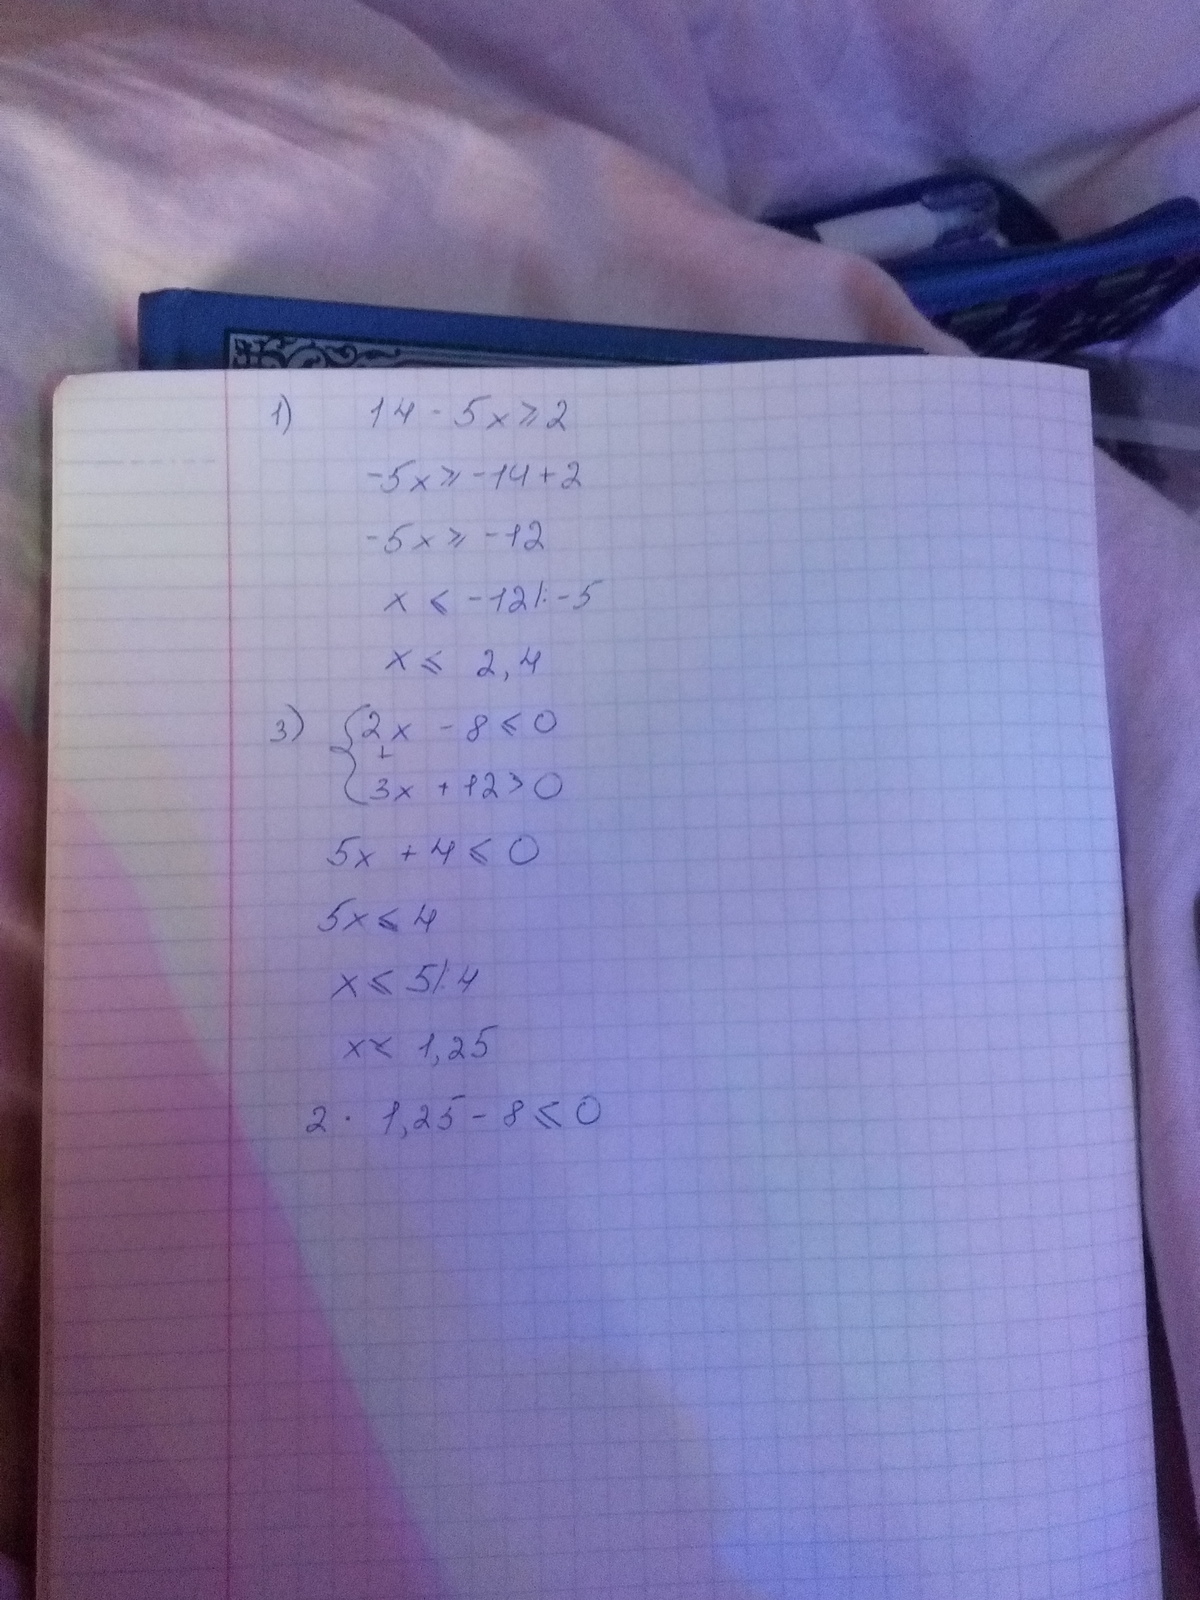 1) 14 - 5x ⩾ 2
-5x ⩾ -14 + 2
-5x ⩾ -12
x ⩽ -12 |: -5
x ⩽ 2,4
3) { 2x - 8 ⩽ 0
+
3x + 12 > 0
5x + 4 ⩽ 0
5x ⩽ 4
x ⩽ 5 |: 4
x ⩽ 1,25
2 · 1,25 - 8 ⩽ 0